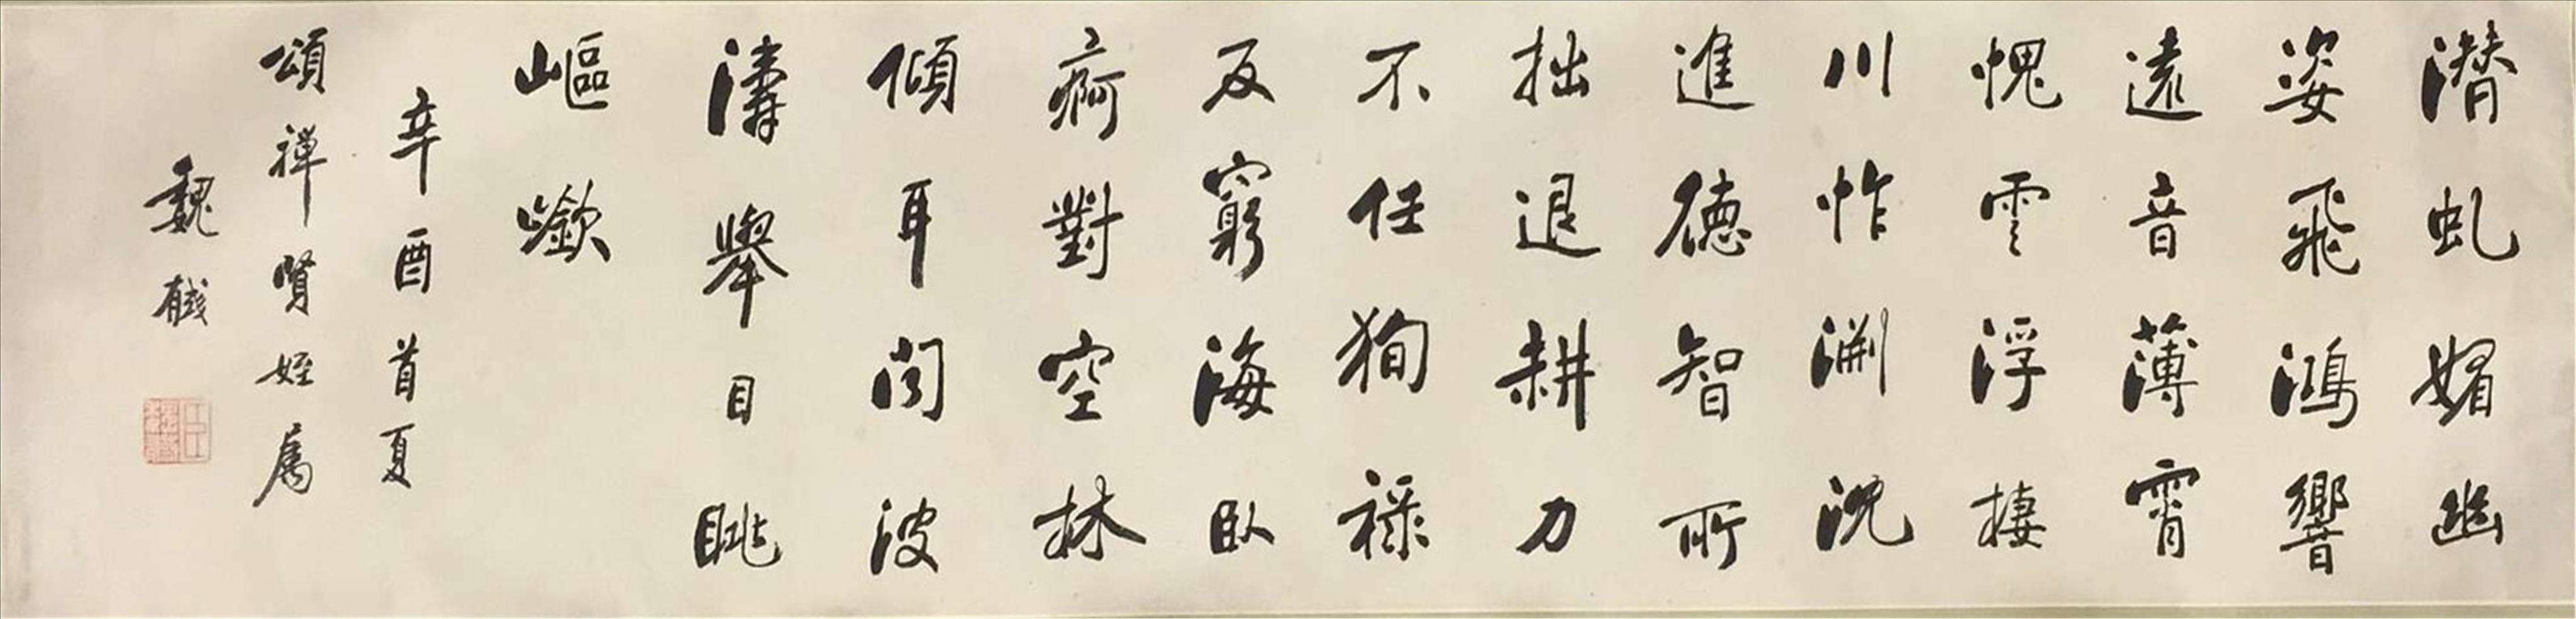 潛虬媚幽
姿飛鴻響
遠音薄霄
愧雲浮棲
川怍淵沈
進德智所
拙退耕力
不任狥祿
反窮海臥
痾對空林
傾耳聆波
濤舉目眺
嶇嶔
辛酉首夏
頌禪賢姪屬
魏戫